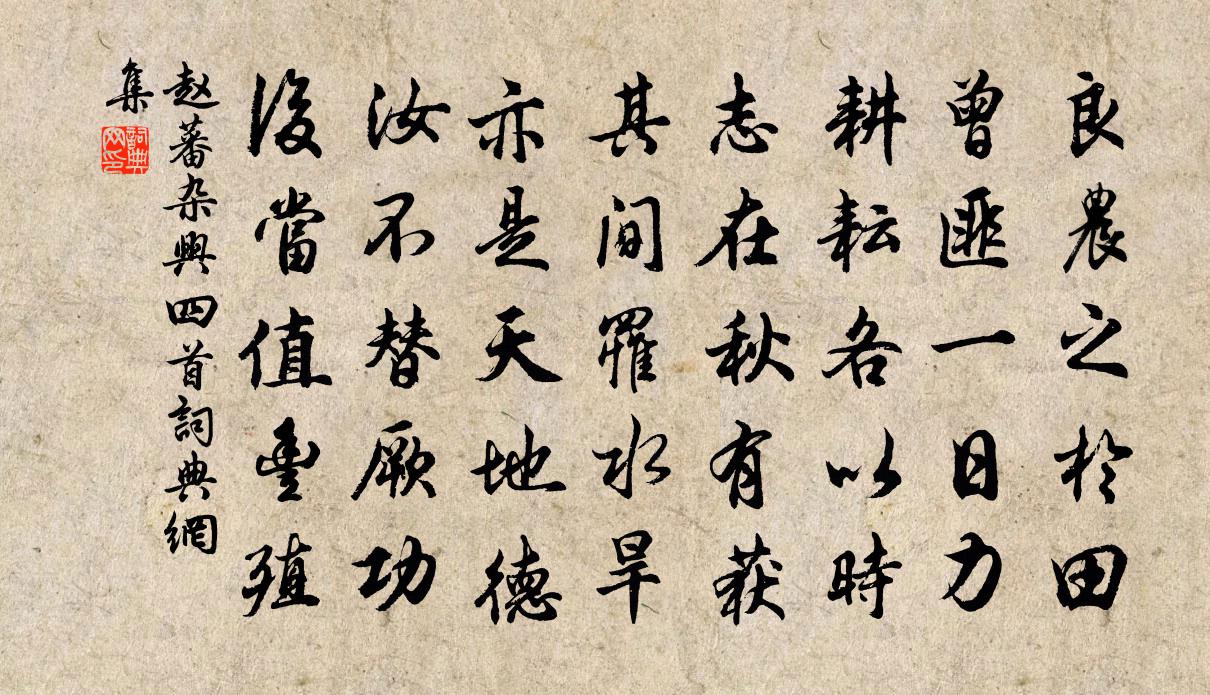 良農之於田
曾匪一日力
耕耘各以時
志在秋有获
其間罹水旱
亦是天地德
汝不替厥功
後當值豊殖
赵蕃杂興四首詞典網
集
詞典
网印